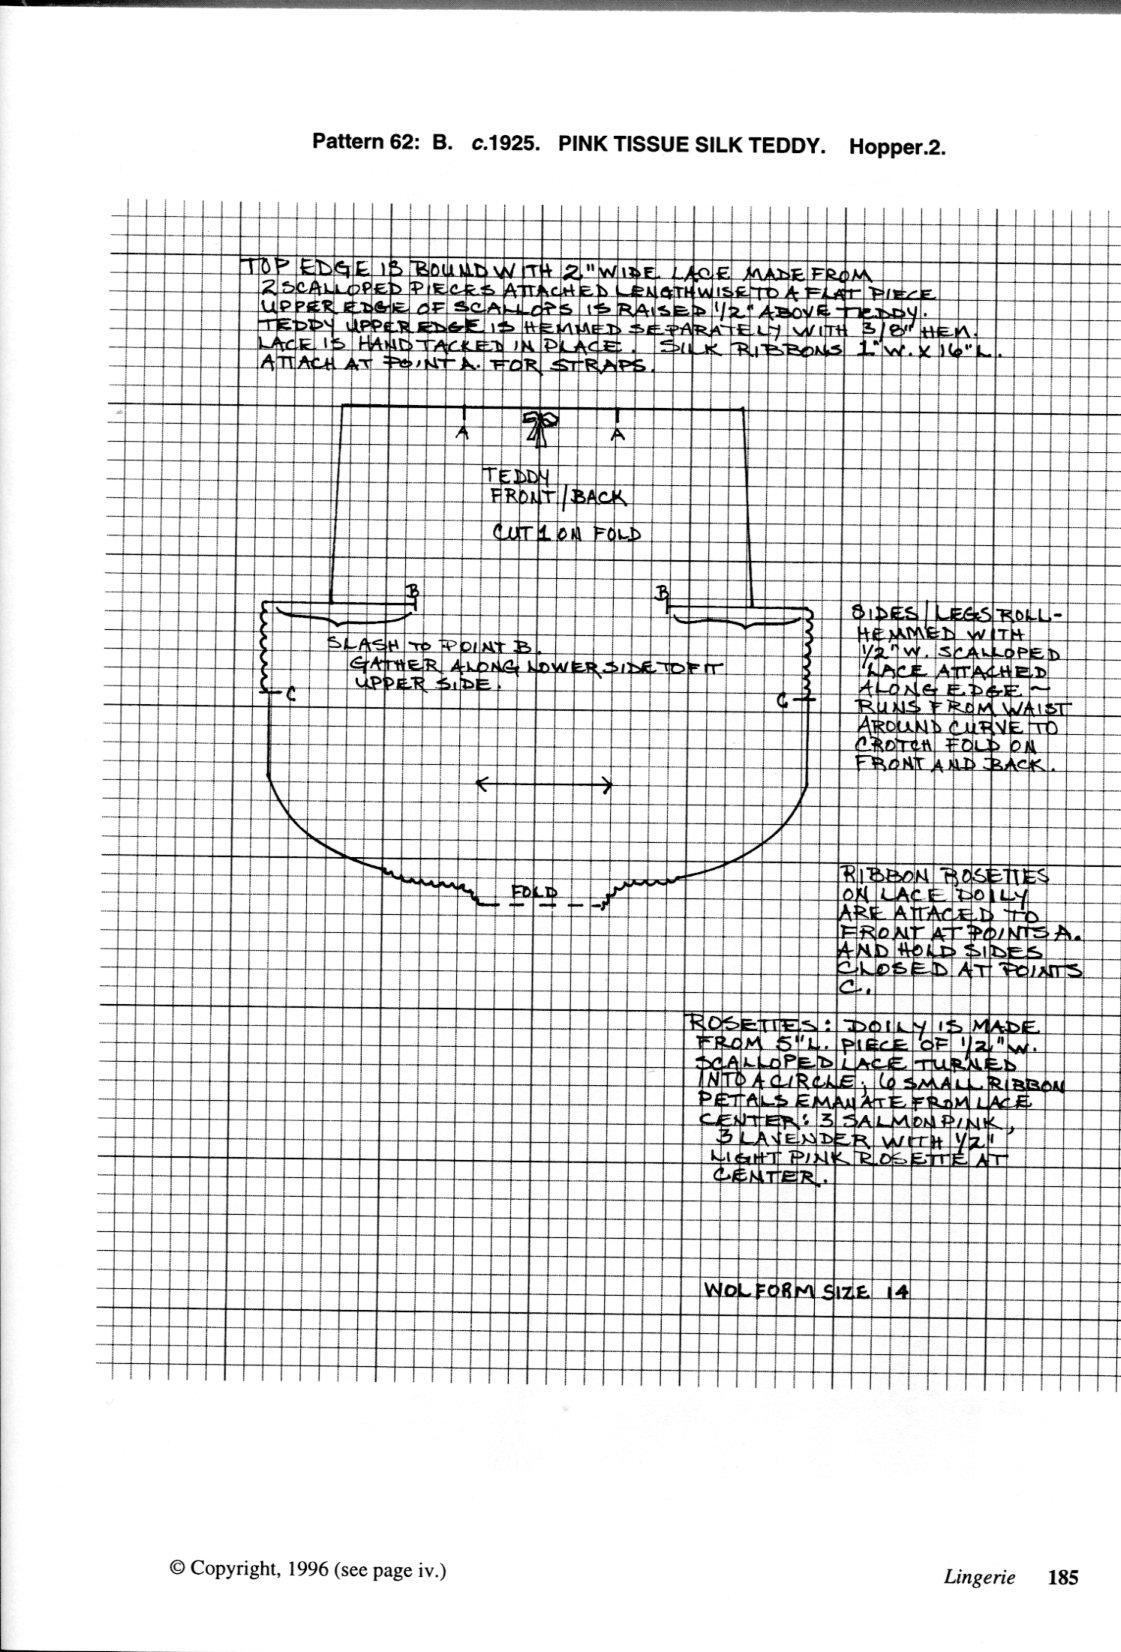 Pattern 62: B. c.1925. PINK TISSUE SILK TEDDY. Hopper.2.
TOP EDGE IS BOUND WITH 2" WIDE LACE MADE FROM
2 SCALLOPED PIECES ATTACHED LENGTHWISE TO A FLAT PIECE
UPPER EDGE OF SCALLOPS IS RAISED 1/2" ABOVE TEDDY.
TEDDY UPPER EDGE IS HEMMED SEPARATELY WITH 3/8" HEM.
LACE IS HAND TACKED IN PLACE. SILK RIBBONS 1"W. X 16"L.
ATTACH AT POINT A. FOR STRAPS.
A A
TEDDY
FRONT/BACK
CUT 1 ON FOLD
B B
SLASH TO POINT B.
GATHER ALONG LOWER SIDE TO FIT
UPPER SIDE.
C C
SIDES/LEGS ROLL-
HEMMED WITH
1/2" W. SCALLOPED
LACE ATTACHED
ALONG EDGE ~
RUNS FROM WAIST
AROUND CURVE TO
CROTCH FOLD ON
FRONT AND BACK.
FOLD
RIBBON ROSETTES
ON LACE DOILY
ARE ATTACED TO
FRONT AT POINTS A.
AND HOLD SIDES
CLOSED AT POINTS
C.
ROSETTES: DOILY IS MADE
FROM 5"L. PIECE OF 1/2"W.
SCALLOPED LACE TURNED
INTO A CIRCLE; 6 SMALL RIBBON
PETALS EMANATE FROM LACE
CENTER: 3 SALMON PINK,
3 LAVENDER WITH 1/2"
LIGHT PINK ROSETTE AT
CENTER.
WOLF FORM SIZE 14
© Copyright, 1996 (see page iv.)
Lingerie 185